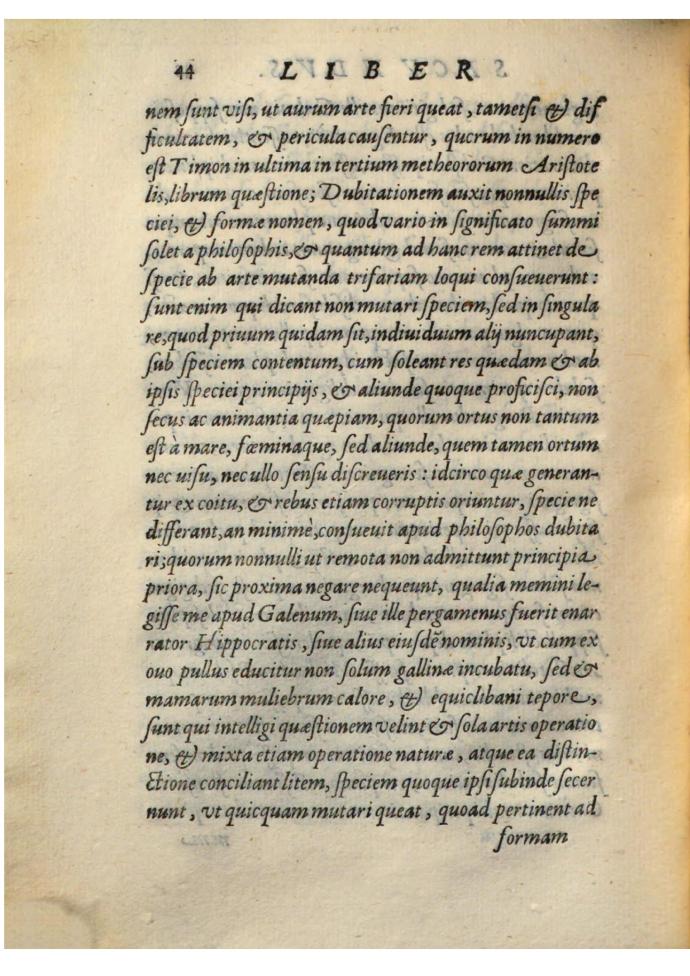 44 LIBER
nem sunt visi, ut aurum arte fieri queat, tametsi & dif
ficultatem, & pericula causentur, qucrum in numero
est Timon in ultima in tertium metheororum Aristote
lis, librum quæstione; Dubitationem auxit nonnullis spe
ciei, & formæ nomen, quod vario in significato summi
solet a philosophis, & quantum ad hanc rem attinet de
specie ab arte mutanda trifariam loqui consueuerunt:
sunt enim qui dicant non mutari speciem, sed in singula
re, quod priuum quidam sit, indiuiduum alij nuncupant,
sub speciem contentum, cum soleant res quædam & ab
ipsis speciei principijs, & aliunde quoque proficisci, non
secus ac animantia quæpiam, quorum ortus non tantum
est à mare, fœminaque, sed aliunde, quem tamen ortum
nec uisu, nec ullo sensu discreueris: idcirco quæ generan-
tur ex coitu, & rebus etiam corruptis oriuntur, specie ne
differant, an minimè, consueuit apud philosophos dubita
ri; quorum nonnulli ut remota non admittunt principia
priora, sic proxima negare nequeunt, qualia memini le-
gisse me apud Galenum, siue ille pergamenus fuerit enar
rator Hippocratis, siue alius eiusdē nominis, vt cum ex
ouo pullus educitur non solum gallinæ incubatu, sed &
mamarum muliebrum calore, & equiclibani tepore,
sunt qui intelligi quæstionem velint & sola artis operatio
ne, & mixta etiam operatione naturæ, atque ea distin-
ctione conciliant litem, speciem quoque ipsi subinde secer
nunt, vt quicquam mutari queat, quoad pertinent ad
formam